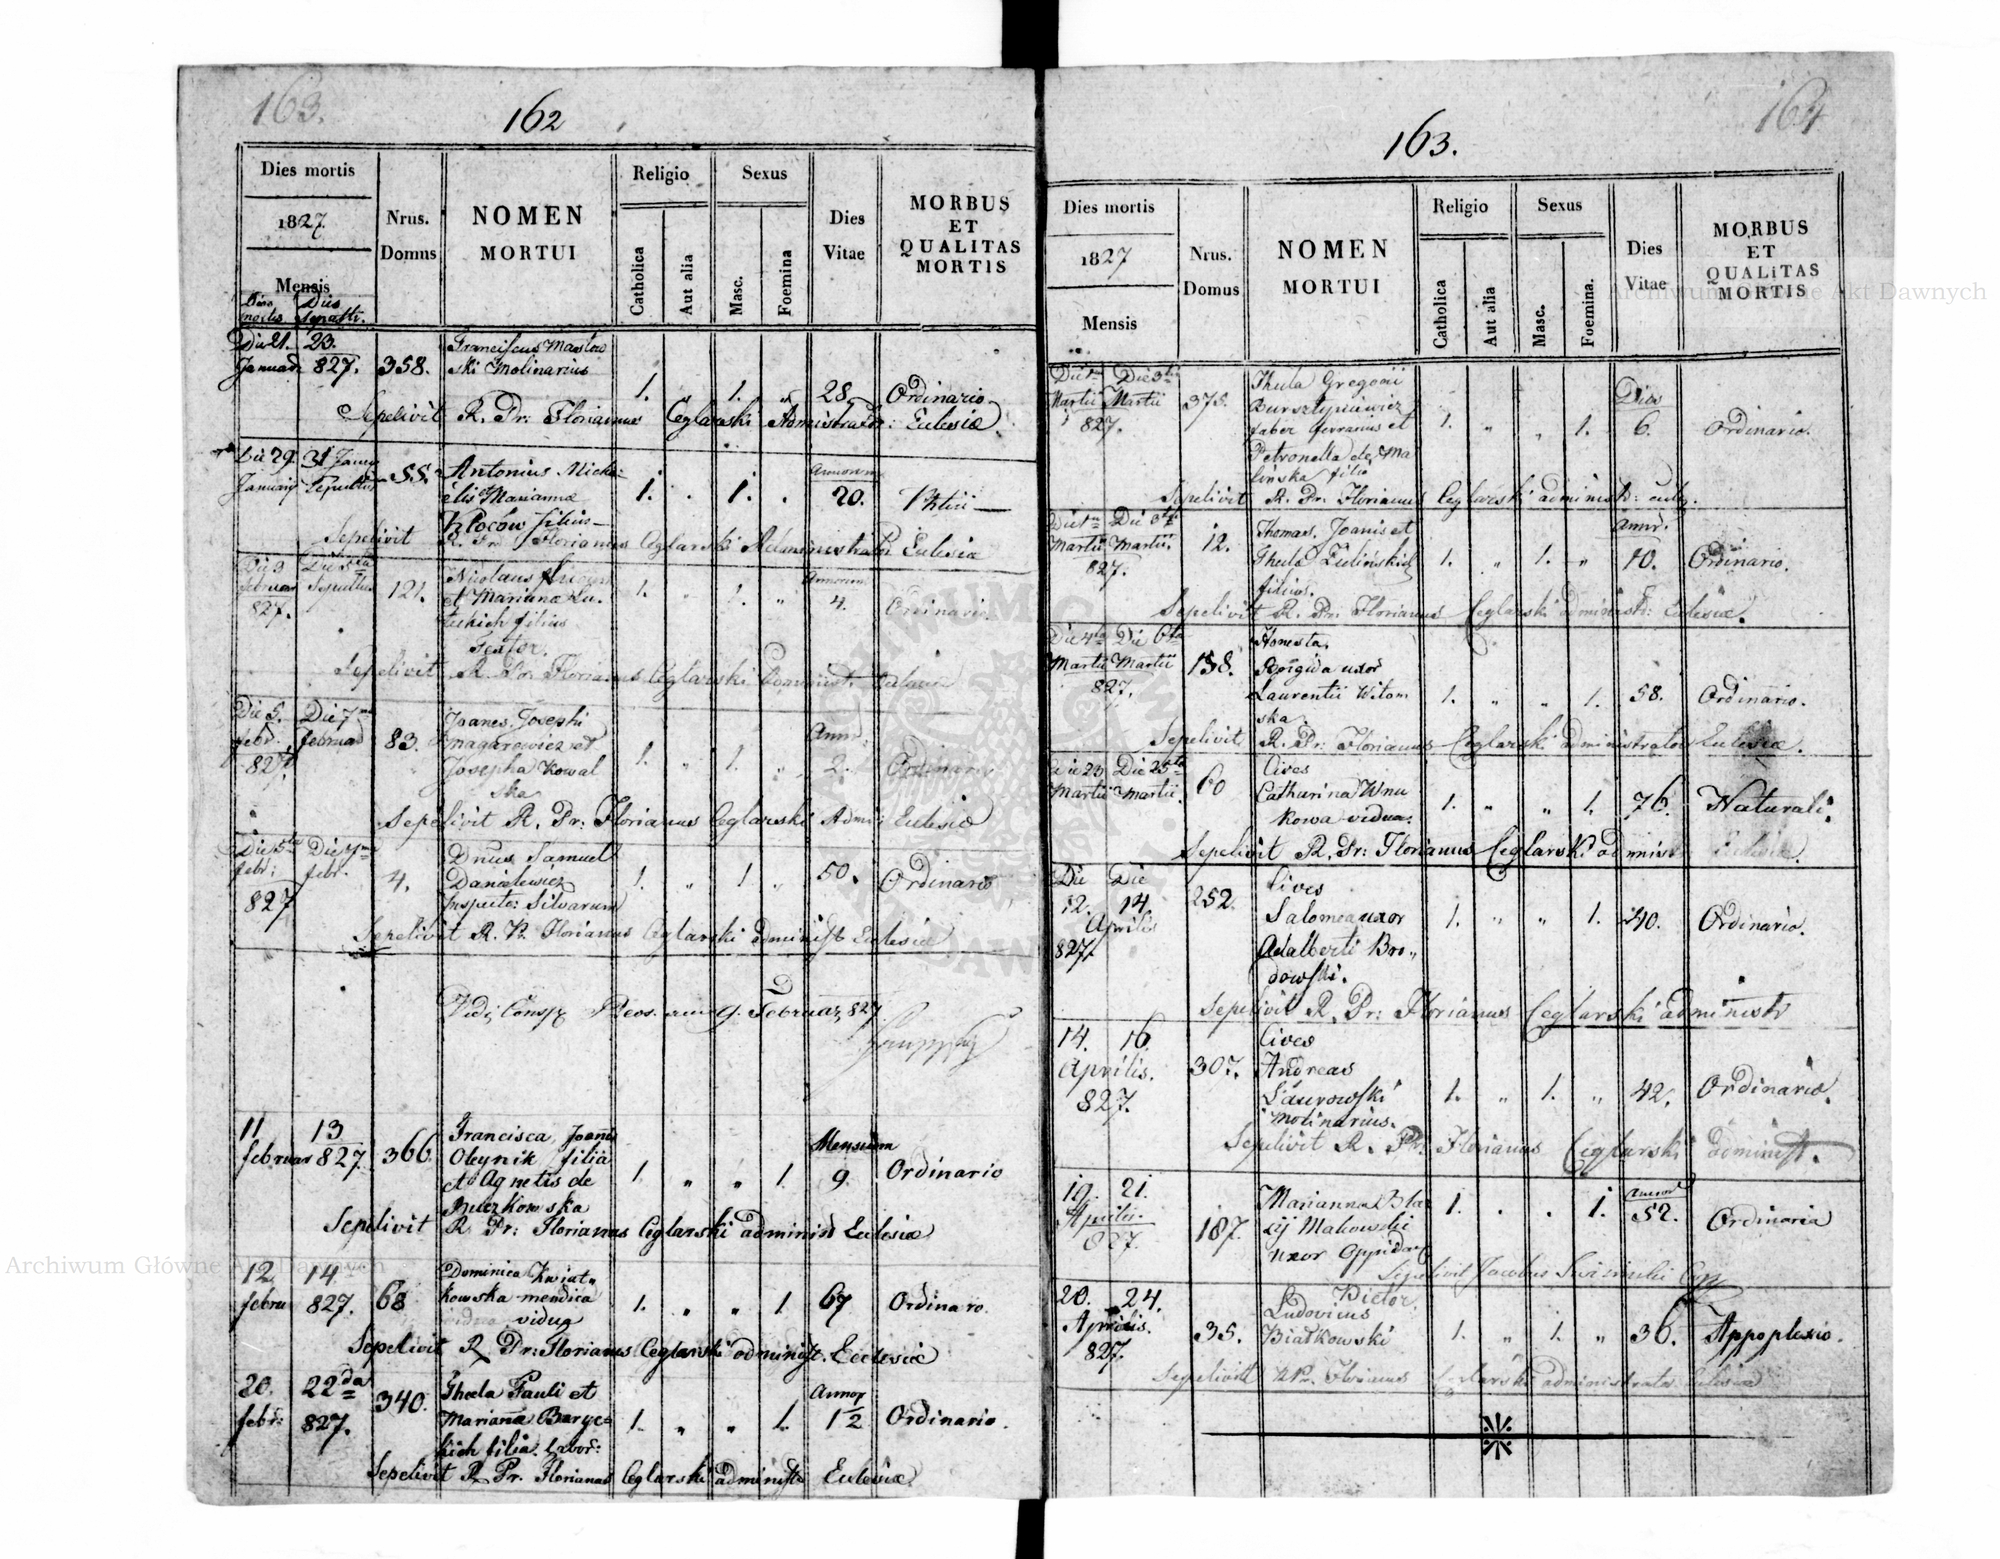 163.
162
Dies mortis
1827.
Mensis
Dies mortis
Dies Sepulti.
Nrus. Domus
NOMEN MORTUI
Religio
Catholica
Aut alia
Sexus
Masc.
Foemina
Dies Vitae
MORBUS ET QUALITAS MORTIS
Die 21. 23.
Januar 827. 358.
Franciscus Masłow
ski Molinarius
1. „ 1. „ 28. Ordinario
Sepelivit R. Pr: Florianus Ceglarski Administrator: Eclesiæ
Die 29. 31 Januar
Januarij Sepultus 55.
Antonius Micha-
elis Marianna
Kłoców filius
1. . 1. . Annorum 20.
Sepelivit R. Pr Florianus Ceglarski Administrator Eclesiæ
Die 3 Die 5ta
februar Sepultus
827. 121.
Nicolaus
et Marianna Lu-
teckich filius
Textor.
1. „ 1. „ Annorum 4. Ordinario
Sepelivit R. Pr. Florianus Ceglarski
Die 5. Die 7ma
febr. februar
827. 83.
Joanes Josephi
et
Josepha Kowal
ska
1. „ 1. „ Annor. 2. Ordinario
Sepelivit R. Pr: Florianus Ceglarski Admi: Eclesiæ
Die 5ta Die 7ma
febr: febr.
827 4.
Dnus Samuel
Danielewicz
Inspector Silvarum
1. „ 1 „ 50. Ordinario
Sepelivit R. Pr Florianus Ceglarski administ Eclesiæ
Februar, 827
11 13
februar 827. 366.
Francisca, Joanis
Oleynik filia
et Agnetis de
1. „ „ 1. Mensium 9. Ordinario
Sepelivit R. Pr: Florianus Ceglarski administ Eclesiæ
12 14
februa 827. 68
Dominica Kwiat-
kowska mendica
vidua
1. „ „ 1 67 Ordinaro.
Sepelivit R. Pr: Florianus Ceglarski administ. Ecclesiæ
20. 22da
febr: 827. 340.
Thecla Pauli et
Marianæ Baryc-
kich filia. Labor:
1. „ „ 1. Annor 1 1/2 Ordinario.
Sepelivit R. Pr. Florianus Ceglarski administ Eclesiæ
164
163.
Dies mortis
1827
Mensis
Nrus. Domus
NOMEN MORTUI
Religio
Catholica
Aut alia
Sexus
Masc.
Foemina.
Dies Vitae
MORBUS ET QUALITAS MORTIS
Die 1ma Die 3tia
Martii Martii
827. 375.
Thecla Gregorii
Bursztyniewicz
faber ferrarius et
Petronella de Ma
linska filia
1. „ „ 1. Dies 6. Ordinario.
Sepelivit R. Pr: Florianus Ceglarski administ:
Die 1ma Die 3tia
Martii Martii.
827. 12.
Thomas, Joanis et
Thecla Zielińskich
filius.
1. „ 1. „ Annor. 10. Ordinario.
Sepelivit R. Pr: Florianus Ceglarski administ: Eclesiæ.
Die 4ta Die 6ta
Martii Martii
827. 158.
Honesta
Brigida uxor
Laurentii Witom
ska.
1. „ „ 1. 58. Ordinario.
Sepelivit R. Pr: Florianus Ceglarski administrator Eclesiæ.
Die 23 Die 25ta
Martii Martii. 60
Cives
Catharina Wnu
kowa vidua.
1. „ „ 1. 76. Naturali.
Sepelivit R. Pr: Florianus Ceglarski administ Eclesiæ.
Die Die
12. 14.
Aprilis
827. 252.
Cives
Salomea uxor
Adalberti Bro-
dowski.
1. „ „ 1. 40. Ordinario.
Sepelivit R. Pr: Florianus Ceglarski administr
14. 16.
Aprilis.
827. 307.
Cives
Andreas
Laurowski
Molinarius.
1. „ 1. „ 42. Ordinario.
Sepelivit R. Pr. Florianus Ceglarski administ.
19. 21.
Aprilis.
827. 187.
Marianna Bla
zij Makowski
uxor oppidar
1. . . 1. Annor 52. Ordinaria
Sepelivit Jacobus
20. 24.
Aprilis.
827. 35.
Pictor.
Ludovicus
Białkowski
1. „ 1. „ 36. Appoplexio.
Sepelivit R Pr. Florianus Ceglarski administrator Eclesiæ
Archiwum Główne Akt Dawnych
Archiwum Główne Akt Dawnych